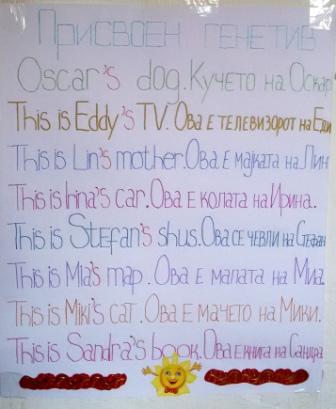 Присвоен генетив
Oscar's dog. Кучето на Оскар
This is Eddy's TV. Ова е телевизорот на Еди
This is Lin's mother. Ова е мајката на Лин
This is Irina's car. Ова е колата на Ирина.
This is Stefan's shus. Ова се чевли на Стефан
This is Mia's map. Ова е мапата на Миа.
This is Miki's cat. Ова е мачето на Мики.
This is Sandra's book. Ова е книга на Сандра